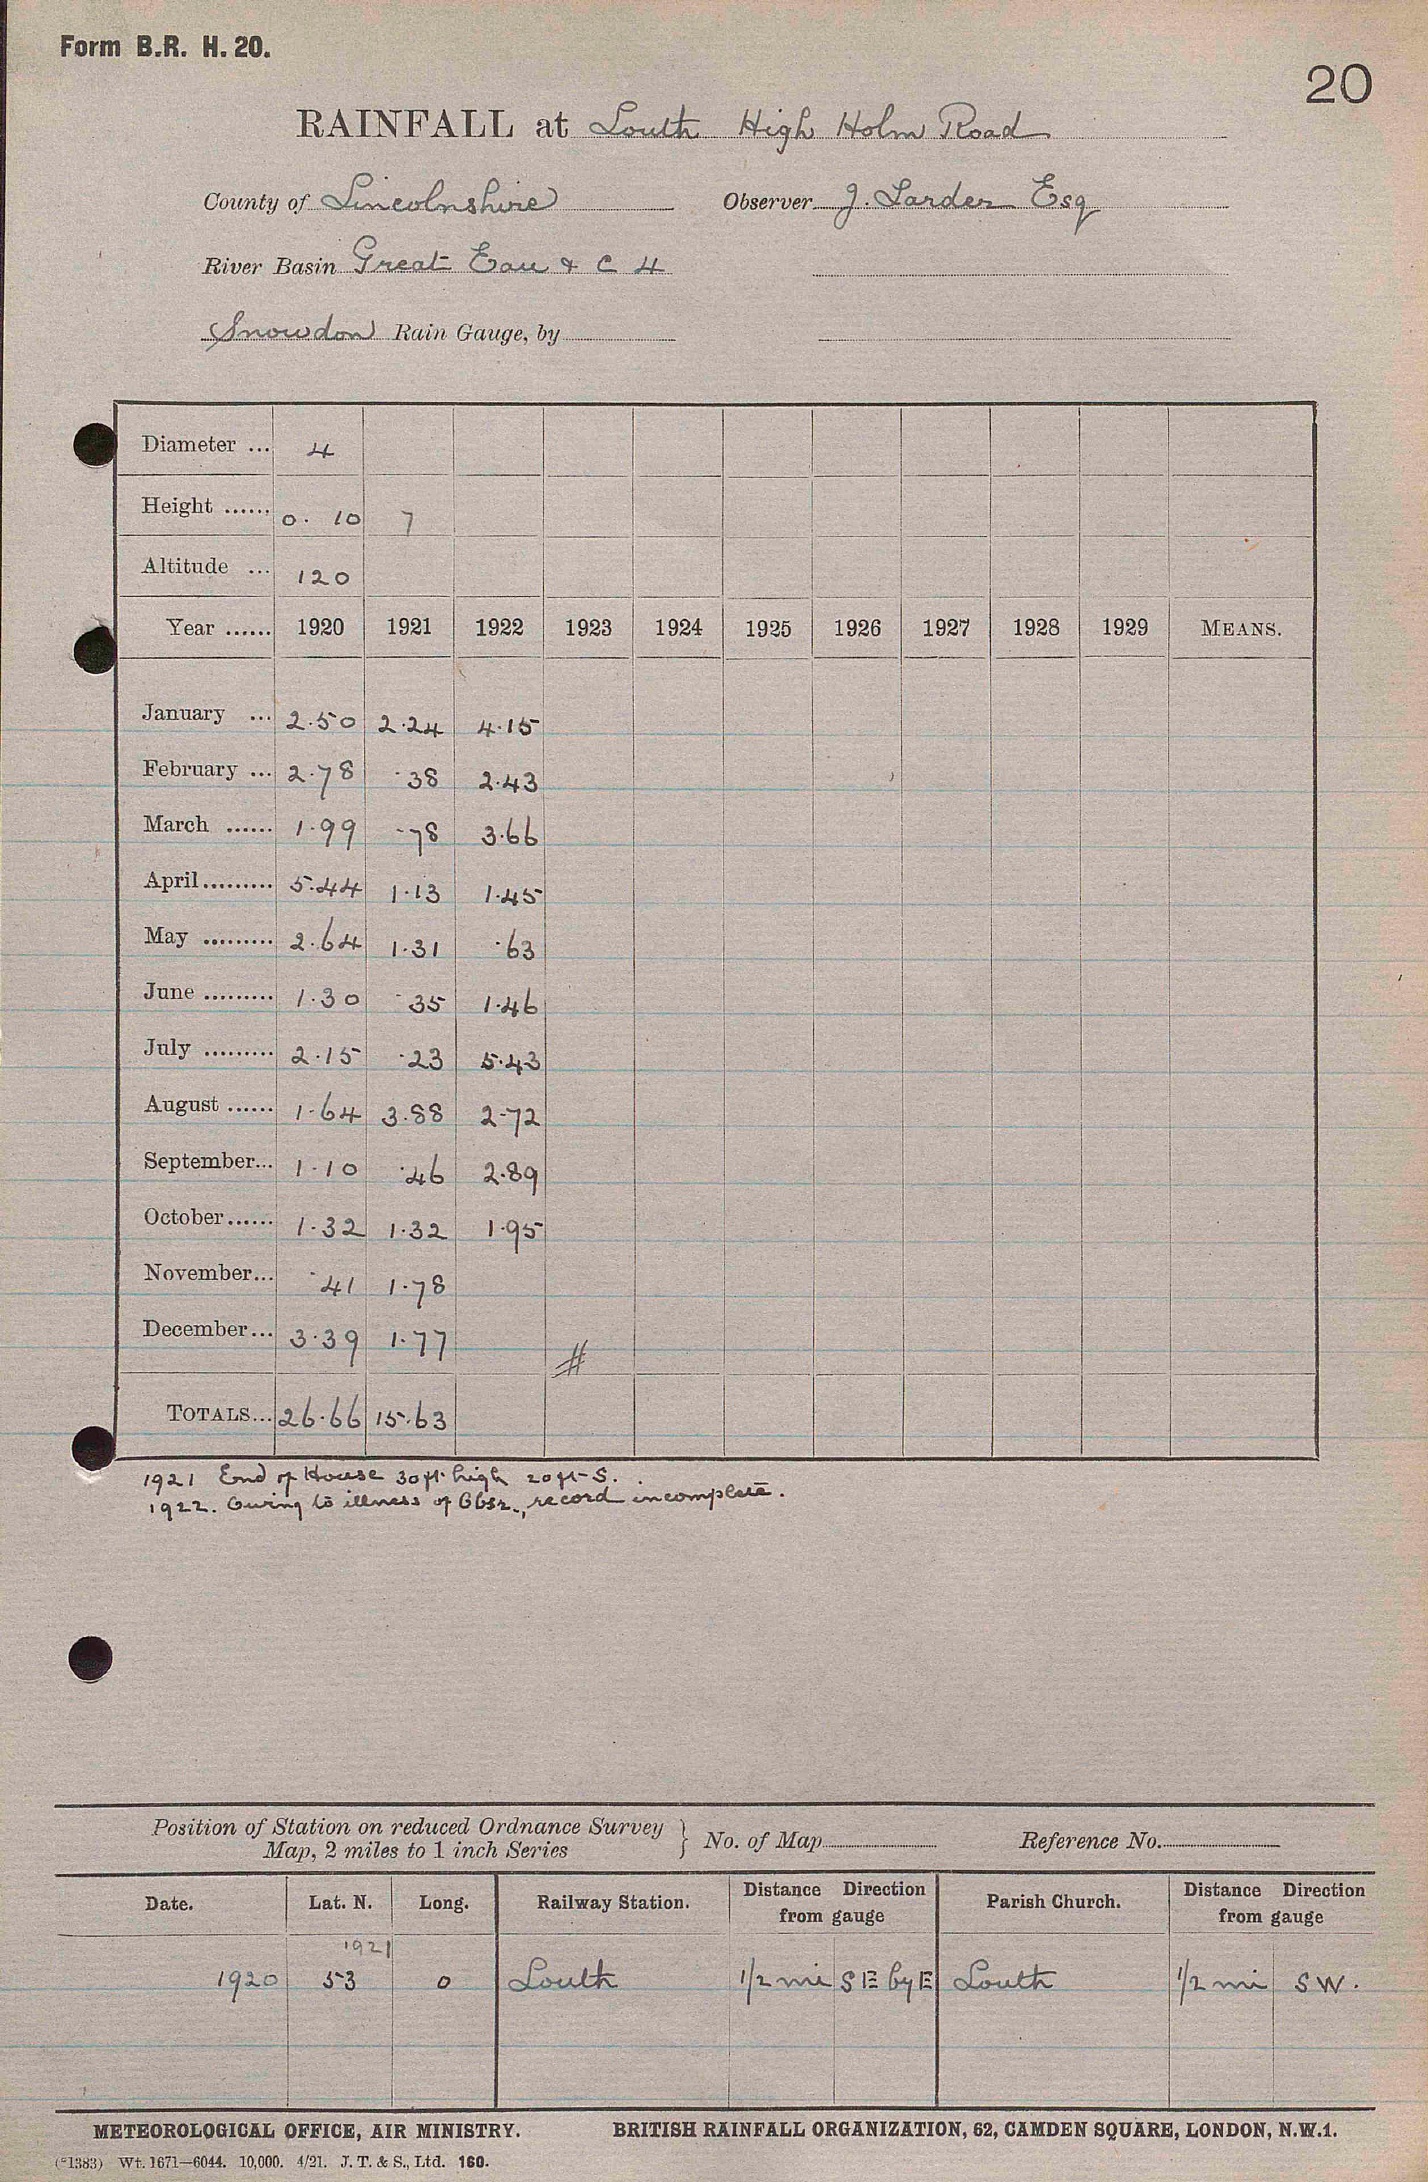 Form B.R. H. 20.
20
RAINFALL at Louth High Holm Road
County of Lincolnshire Observer J. Larder Esq
River Basin Great Eau & C 4
Snowdon Rain Gauge, by
Diameter ... 4
Height ...... 0. 10 7
Altitude ... 120
Year ...... 1920 1921 1922 1923 1924 1925 1926 1927 1928 1929 MEANS.
January ... 2.50 2.24 4.15
February ... 2.78 .38 2.43
March ...... 1.99 .78 3.66
April ......... 5.44 1.13 1.45
May ......... 2.64 1.31 .63
June ......... 1.30 .35 1.46
July ......... 2.15 .23 5.43
August ...... 1.64 3.88 2.72
September... 1.10 .46 2.89
October...... 1.32 1.32 1.95
November... .41 1.78
December... 3.39 1.77
#
TOTALS... 26.66 15.63
1921 End of House 30 ft. high 20 ft S.
1922. Owing to illness of Obsr., record incomplete.
Position of Station on reduced Ordnance Survey
Map, 2 miles to 1 inch Series } No. of Map Reference No.
Date. Lat. N. Long. Railway Station. Distance Direction from gauge Parish Church. Distance Direction from gauge
1921
1920 53 0 Louth 1/2 mi SE by E Louth 1/2 mi SW.
METEOROLOGICAL OFFICE, AIR MINISTRY. BRITISH RAINFALL ORGANIZATION, 62, CAMDEN SQUARE, LONDON, N.W.1.
(*1383) Wt. 1671—6044. 10,000. 4/21. J. T. & S., Ltd. 160.